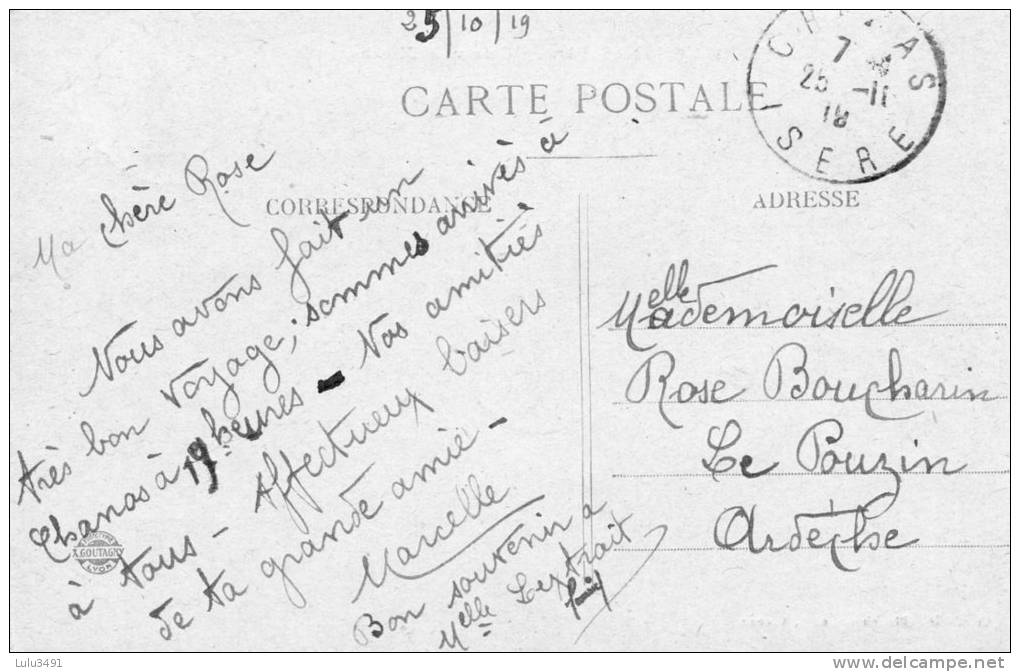 25/10/19
CHANAS
7
25 -11
19
ISERE
CARTE POSTALE
CORRESPONDANCE
ADRESSE
Ma chère Rose
Nous avons fait un
très bon voyage; sommes arrivés à
Chanas à 19 heures - Nos amitiés
à tous - Affectueux baisers
de ta grande amie -
Marcelle
Bon souvenir a
Melle
Melle
Mademoiselle
Rose Boucharin
Le Pouzin
Ardèche
X. GOUTAGNY
LYON
Lulu3491
www.delcampe.net